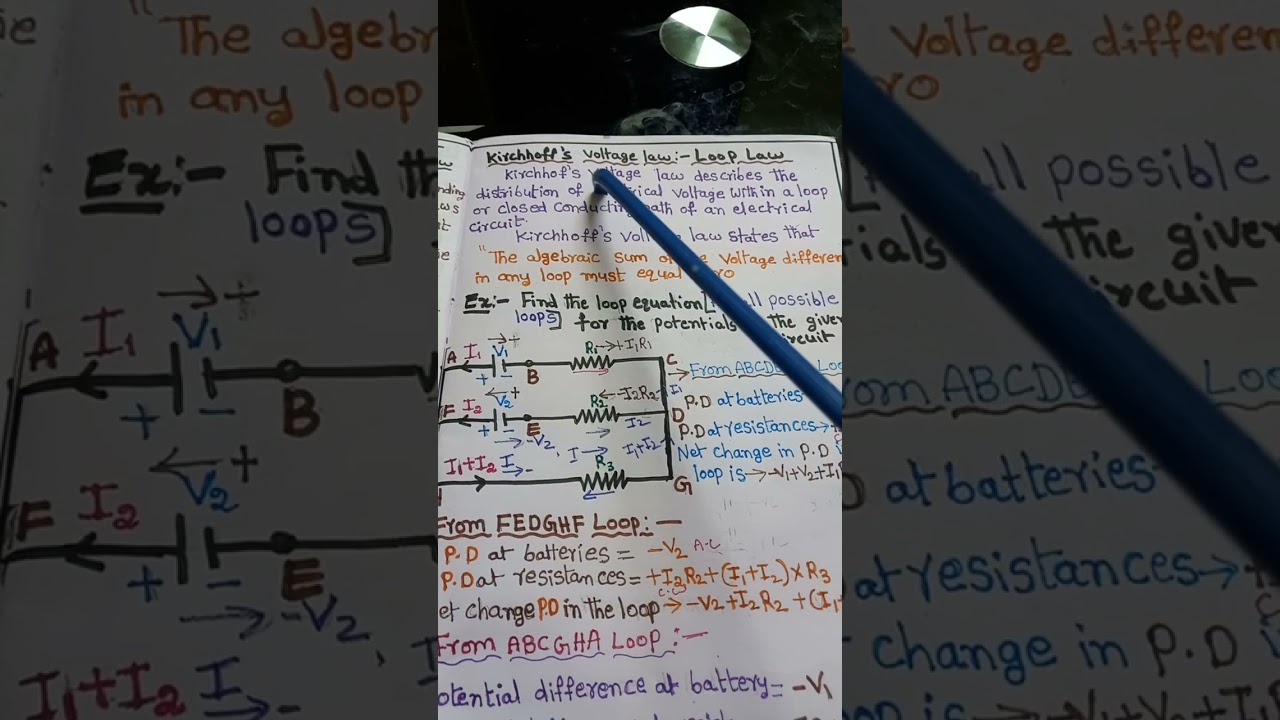 Kirchhoff's Voltage law:- Loop Law
Kirchhof's voltage law describes the
distribution of electrical voltage within a loop
or closed conducting path of an electrical
circuit.
Kirchhoff's voltage law states that
"The algebraic sum of the voltage differen
in any loop must equal zero
Ex:- Find the loop equation [for all possible
loops] for the potentials in the given
circuit
A I1 V1 + B R1 +I1R1 C
+ -
F I2 V2 + E R2 -I2R2 D
+ - -V2 I2 I1
I1+I2 I - I R3 I1+I2 G
From ABCDE Loo
P.D at batteries-
P.D at resistances→
Net change in P.D i
loop is → -V1+V2+I1
From FEDGHF Loop:-
P.D at batteries = -V2 A-C
P.D at resistances = +I2R2+(I1+I2)×R3
et change P.D in the loop → -V2+I2R2+(I1+
From ABCGHA Loop:-
otential difference at battery = -V1